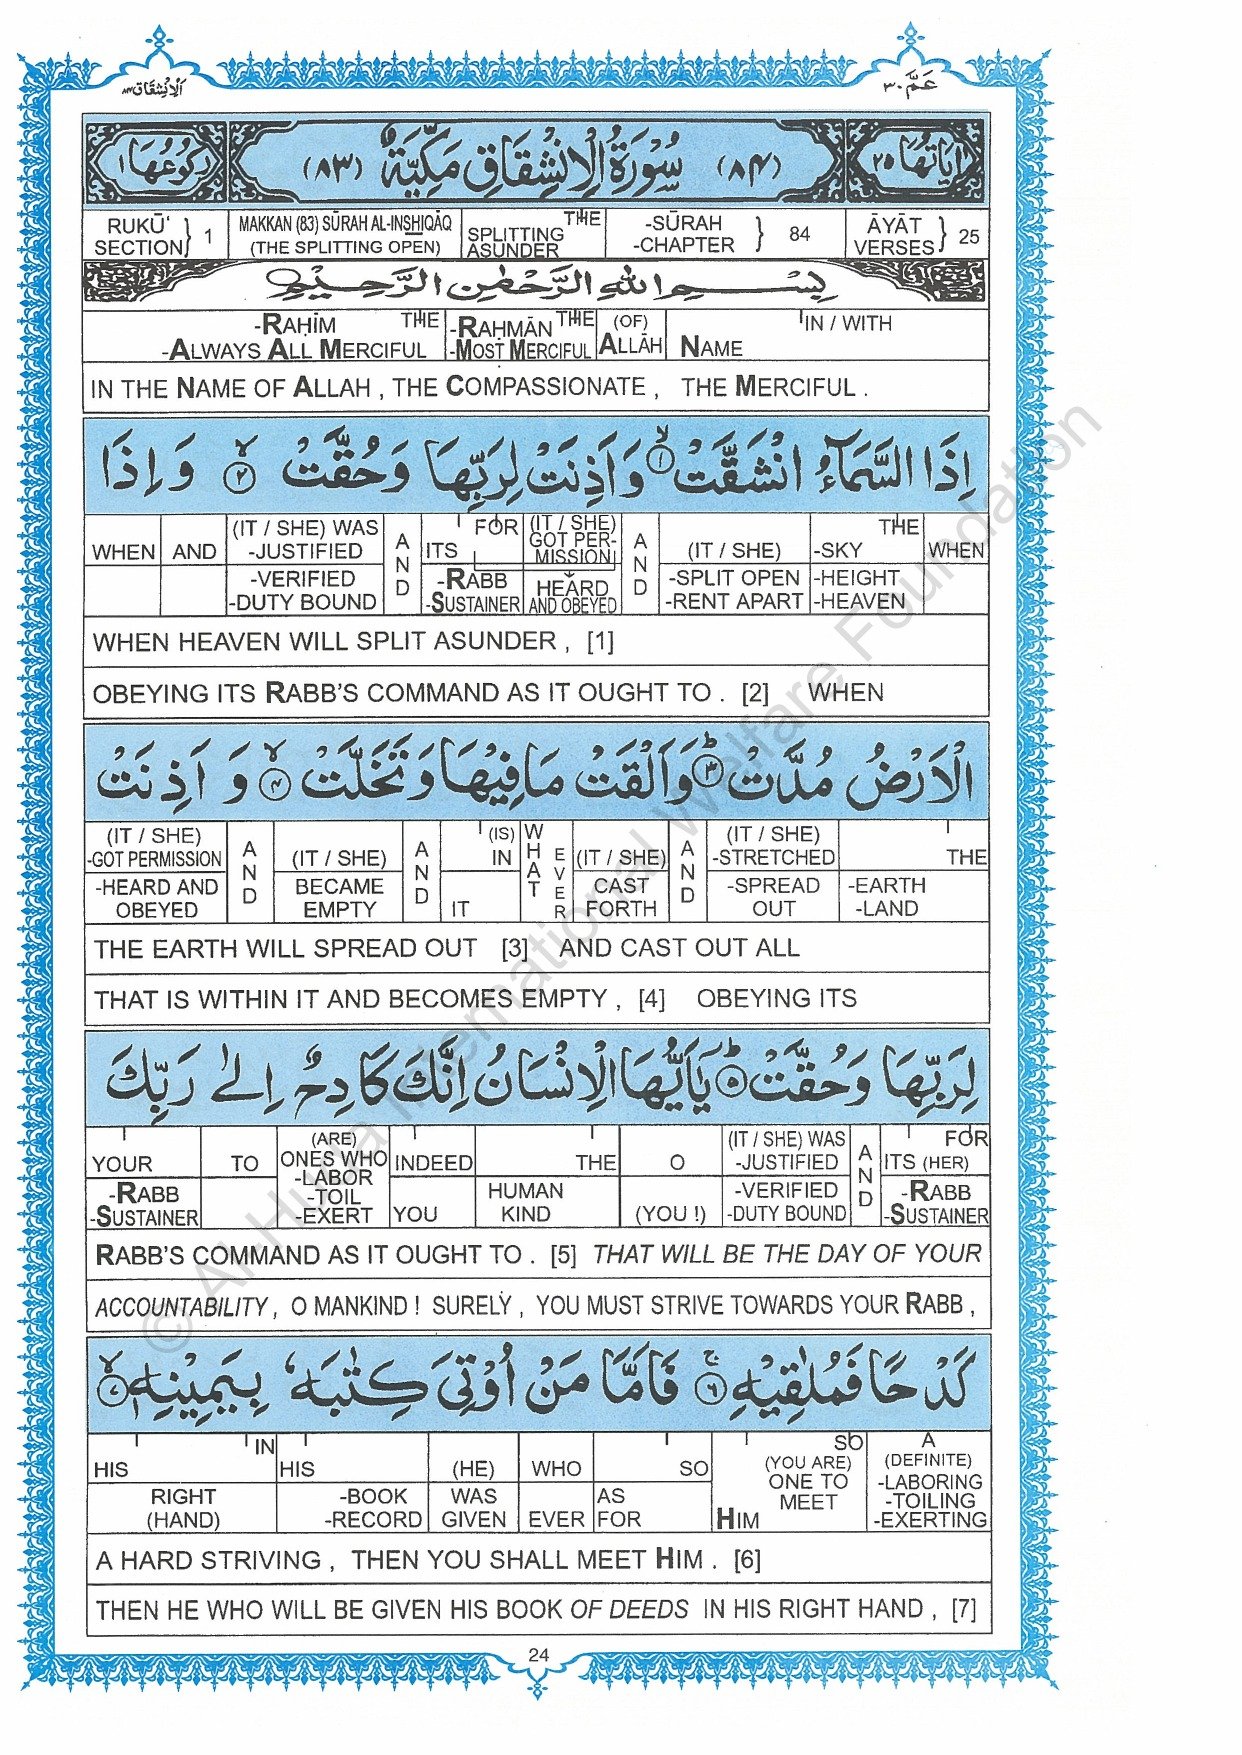 الانشقاق ٨٤
عَمَّ ٣٠
اٰيَاتُهَا ٢٥ (٨٤) سُوْرَةُ الْاِنْشِقَاقِ مَكِّيَّةٌ (٨٣) رُكُوْعُهَا ١
RUKŪ‘ SECTION } 1 | MAKKAN (83) SŪRAH AL-INSHIQĀQ (THE SPLITTING OPEN) | THE SPLITTING ASUNDER | -SŪRAH -CHAPTER } 84 | ĀYĀT VERSES } 25
بِسْمِ اللّٰهِ الرَّحْمٰنِ الرَّحِيْمِ
-RAḤĪM THE | -RAḤMĀN THE | (OF) | IN / WITH
-ALWAYS ALL MERCIFUL | -MOST MERCIFUL | ALLĀH | NAME
IN THE NAME OF ALLAH , THE COMPASSIONATE , THE MERCIFUL .
اِذَا السَّمَآءُ انْشَقَّتْ ۙ﴿١﴾ وَاَذِنَتْ لِرَبِّهَا وَحُقَّتْ ۙ﴿٢﴾ وَاِذَا
WHEN | AND | (IT / SHE) WAS -JUSTIFIED | AND | FOR ITS | (IT / SHE) GOT PER- MISSION | AND | (IT / SHE) | THE -SKY | WHEN
-VERIFIED -DUTY BOUND | -RABB -SUSTAINER | HEARD AND OBEYED | -SPLIT OPEN -RENT APART | -HEIGHT -HEAVEN
WHEN HEAVEN WILL SPLIT ASUNDER , [1]
OBEYING ITS RABB’S COMMAND AS IT OUGHT TO . [2] WHEN
الْاَرْضُ مُدَّتْ ۙ﴿٣﴾ وَاَلْقَتْ مَا فِيْهَا وَتَخَلَّتْ ۙ﴿٤﴾ وَاَذِنَتْ
(IT / SHE) -GOT PERMISSION | AND | (IT / SHE) | AND | (IS) IN | WHAT EVER | (IT / SHE) | AND | (IT / SHE) -STRETCHED | THE
-HEARD AND OBEYED | BECAME EMPTY | IT | CAST FORTH | -SPREAD OUT | -EARTH -LAND
THE EARTH WILL SPREAD OUT [3] AND CAST OUT ALL
THAT IS WITHIN IT AND BECOMES EMPTY , [4] OBEYING ITS
لِرَبِّهَا وَحُقَّتْ ؕ﴿٥﴾ يٰۤاَيُّهَا الْاِنْسَانُ اِنَّكَ كَادِحٌ اِلٰى رَبِّكَ
YOUR | TO | (ARE) ONES WHO -LABOR -TOIL -EXERT | INDEED | THE | O | (IT / SHE) WAS -JUSTIFIED | AND | FOR ITS (HER)
-RABB -SUSTAINER | YOU | HUMAN KIND | (YOU !) | -VERIFIED -DUTY BOUND | -RABB -SUSTAINER
RABB’S COMMAND AS IT OUGHT TO . [5] THAT WILL BE THE DAY OF YOUR
ACCOUNTABILITY , O MANKIND ! SURELY , YOU MUST STRIVE TOWARDS YOUR RABB ,
كَدْحًا فَمُلٰقِيْهِ ۚ﴿٦﴾ فَاَمَّا مَنْ اُوْتِيَ كِتٰبَهٗ بِيَمِيْنِهٖ ۙ﴿٧﴾
HIS IN | HIS | (HE) | WHO | SO | SO (YOU ARE) ONE TO MEET | A (DEFINITE) -LABORING -TOILING -EXERTING
RIGHT (HAND) | -BOOK -RECORD | WAS GIVEN | EVER | AS FOR | HIM
A HARD STRIVING , THEN YOU SHALL MEET HIM . [6]
THEN HE WHO WILL BE GIVEN HIS BOOK OF DEEDS IN HIS RIGHT HAND , [7]
24
© Al-Huda International Welfare Foundation